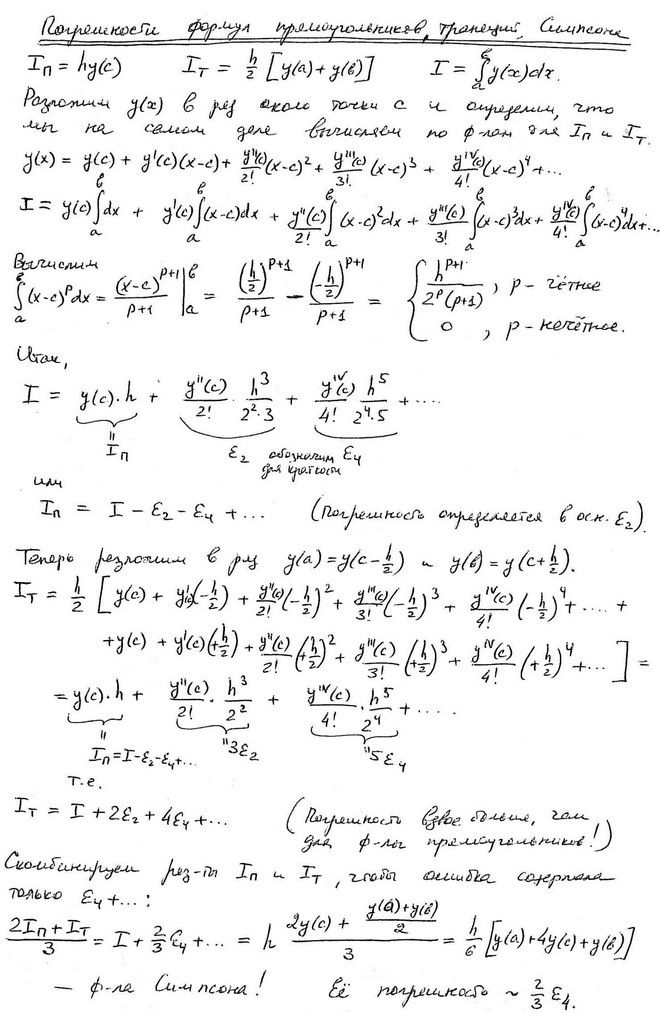 Погрешности формул прямоугольников, трапеций, Симпсона
Iп = hy(c)   Iт = h/2 [y(a) + y(в)]   I = ∫ₐᵇ y(x)dx.
Разложим y(x) в ряд около точки c и определим, что
мы на самом деле вычисляем по ф-лам для Iп и Iт.
y(x) = y(c) + y'(c)(x-c) + y''(c)/2! (x-c)² + y'''(c)/3! (x-c)³ + yᴵⱽ(c)/4! (x-c)⁴ + ...
I = y(c)∫ₐᵇ dx + y'(c)∫ₐᵇ (x-c)dx + y''(c)/2! ∫ₐᵇ (x-c)²dx + y'''(c)/3! ∫ₐᵇ (x-c)³dx + yᴵⱽ(c)/4! ∫ₐᵇ (x-c)⁴dx + ...
Вычислим
∫ₐᵇ (x-c)ᵖdx = (x-c)ᵖ⁺¹/(p+1) |ₐᵇ = (h/2)ᵖ⁺¹/(p+1) - (-h/2)ᵖ⁺¹/(p+1) = { hᵖ⁺¹/(2ᵖ(p+1)), p - чётное
0 , p - нечётное.
Итак,
I = y(c)·h + y''(c)/2! · h³/(2²·3) + yᴵⱽ(c)/4! · h⁵/(2⁴·5) + ....
= Iп   ε₂ обозначим ε₄
для краткости
или
Iп = I - ε₂ - ε₄ + ... (Погрешность определяется в осн. ε₂).
Теперь разложим в ряд y(a) = y(c - h/2) и y(в) = y(c + h/2).
Iт = h/2 [y(c) + y'(c)(-h/2) + y''(c)/2! (-h/2)² + y'''(c)/3! (-h/2)³ + yᴵⱽ(c)/4! (-h/2)⁴ + .... +
+ y(c) + y'(c)(+h/2) + y''(c)/2! (+h/2)² + y'''(c)/3! (+h/2)³ + yᴵⱽ(c)/4! (+h/2)⁴ + ...] =
= y(c)·h + y''(c)/2! · h³/2² + yᴵⱽ(c)/4! · h⁵/2⁴ + .....
= Iп = I-ε₂-ε₄+...   = 3ε₂   = 5ε₄
т.е.
Iт = I + 2ε₂ + 4ε₄ + ... (Погрешность вдвое больше, чем
для ф-лы прямоугольников!)
Скомбинируем рез-ты Iп и Iт, чтобы ошибка содержала
только ε₄ + ... :
(2Iп + Iт)/3 = I + 2/3 ε₄ + ... = h (2y(c) + (y(a)+y(в))/2)/3 = h/6 [y(a) + 4y(c) + y(в)]
— ф-ла Симпсона! Её погрешность ~ 2/3 ε₄.